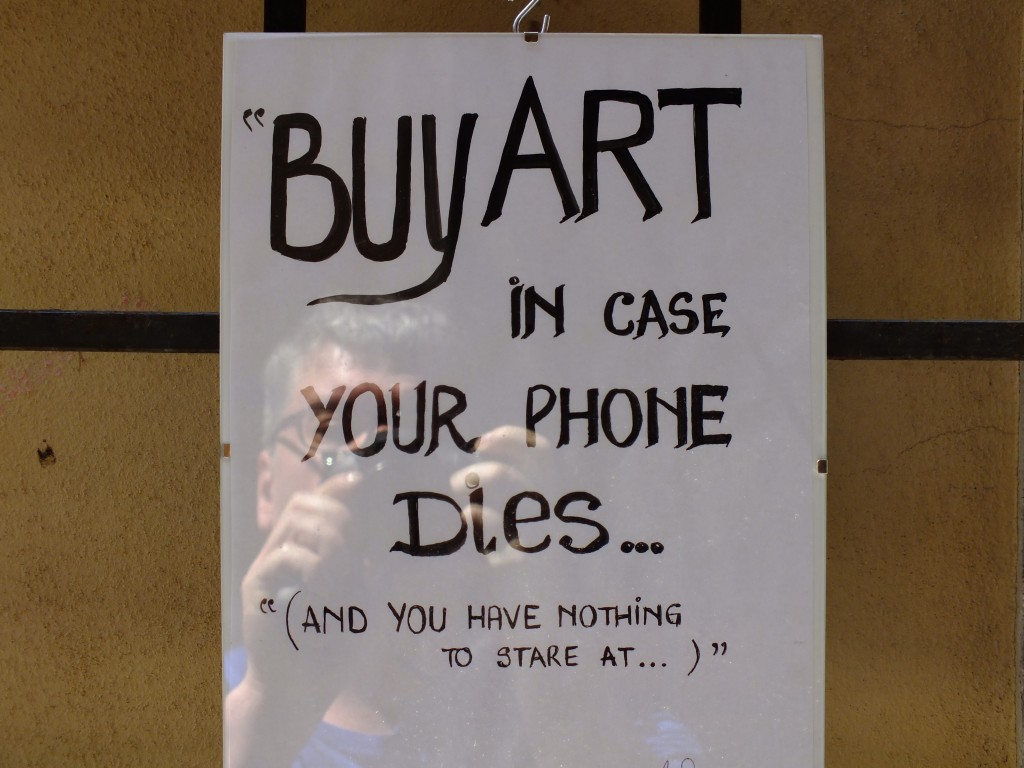 “BUY ART
iN CASE
YOUR PHONE
Dies...
“(AND YOU HAVE NOTHiNG
TO STARE AT... )”